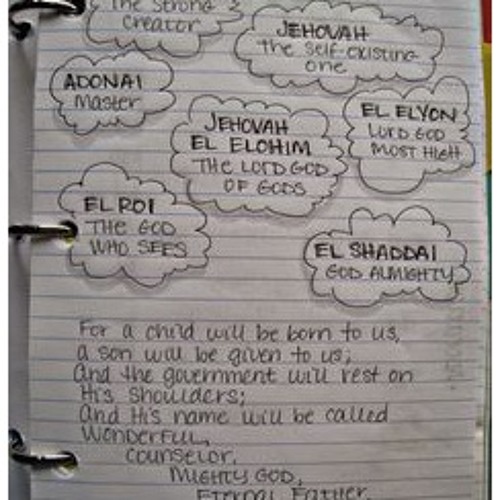 The Strong &
Creator
JEHOVAH
the self-existing
one
ADONAI
Master
EL ELYON
LORD GOD
MOST HIGH
JEHOVAH
EL ELOHIM
THE LORD GOD
OF GODS
EL ROI
THE GOD
WHO SEES
EL SHADDAI
GOD ALMIGHTY
For a child will be born to us,
a son will be given to us;
And the government will rest on
His shoulders;
And His name will be called
Wonderful,
counselor,
MIGHTY GOD,
Eternal Father